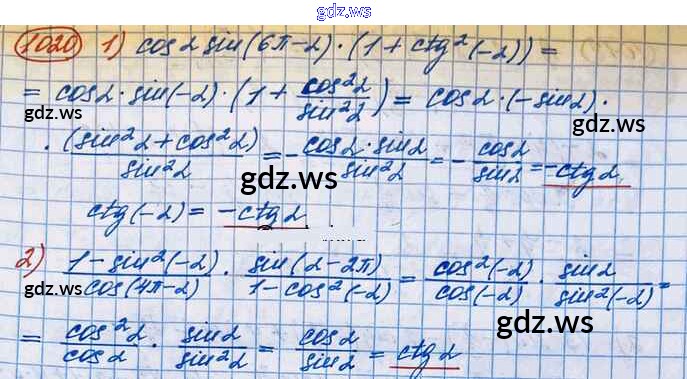 gdz.ws
1020 1) cos α sin(6π-α)·(1+ctg²(-α)) =
= cos α · sin(-α) · (1 + cos²α/sin²α) = cos α · (-sin α) ·
gdz.ws gdz.ws
· (sin²α + cos²α)/sin²α = - cos α · sin α/sin²α = - cos α/sin α = -ctg α
gdz.ws gdz.ws
ctg(-α) = -ctg α
2) 1-sin²(-α)/cos(4π-α) · sin(α-2π)/1-cos²(-α) = cos²(-α)/cos(-α) · sin α/sin²(-α) =
gdz.ws gdz.ws
= cos²α/cos α · sin α/sin²α = cos α/sin α = ctg α
gdz.ws